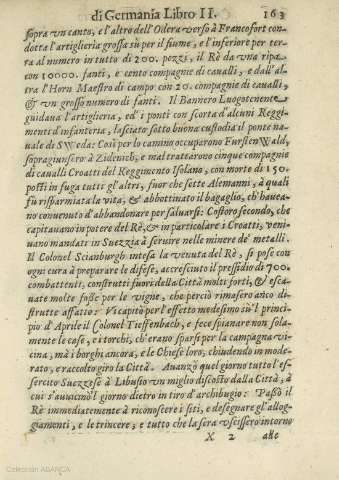 di Germania Libro II. 163
sopra un canto, e l'altro dell'Odera verso à Francofort con-
dotta l'artiglieria grossa sù per il fiume, e l'inferiore per ter-
ra al numero in tutto di 200. pezzi, il Rè da una ripa
con 10000. fanti, e cento compagnie di cavalli, e dall'al-
tra l'Horn Maestro di campo con 20. compagnie di cavalli,
& un grosso numero di fanti. Il Bannero Luogotenente
guidava l'artiglieria, ed i ponti con scorta d'alcuni Reggi-
menti d'infanteria, lasciato sotto buona custodia il ponte na-
vale di SWeda: Così per lo camino occuparono FurstenWald,
sopragiunsero à Zidenich, e mal trattarono cinque compagnie
di cavalli Croatti del Reggimento Isolano, con morte di 150.
posti in fuga tutti gl'altri, fuor che sette Alemanni, à quali
fù risparmiata la vita, & abbottinato il bagaglio, c'havea-
no convenuto d'abbandonare per salvarsi: Costoro secondo, che
capitavano in potere del Rè, & in particolare i Croatti, veni-
vano mandati in Suezzia à servire nelle minere de' metalli.
Il Colonel Scianburgh intesa la venuta del Rè, si pose con
ogni cura à preparare le difese, accresciuto il pressidio di 700.
combattenti, construtti fuori della Città molti forti, & esca-
vate molte fosse per le vigne, che perciò rimasero anco di-
strutte affatto: Vi capitò per l'effetto medesimo sù'l princi-
pio d'Aprile il Colonel Tieffenbach, e fece spianare non sola-
mente le case, e i torchi, ch'erano sparsi per la campagna vi-
cina, mà i borghi ancora, e le Chiese loro, chiudendo in mode-
rato, e raccolto giro la Città. Avanzò quel giorno tutto l'es-
sercito Suezzese à Libusio un miglio discosto dalla Città, à
cui s'avvicinò'l giorno dietro in tiro d'archibugio: Passò il
Rè immediatamente à riconoscere i siti, e desegnare gl'allog-
giamenti, e le trincere, e tutto che la sera uscissero intorno
X 2 alle
Colección ABANCA